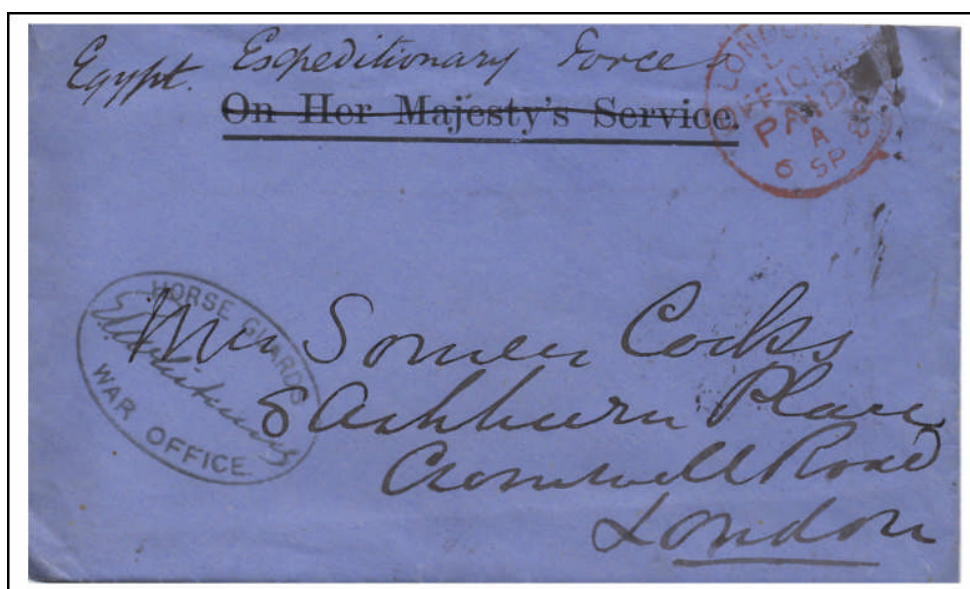 Egypt. Expeditionary Force
On Her Majesty's Service.
LONDON
OFFICIAL
PAID
A
6 SP 82
HORSE GUARDS
WAR OFFICE
Mrs Somers Cocks
8 Ashburn Place
Cromwell Road
London